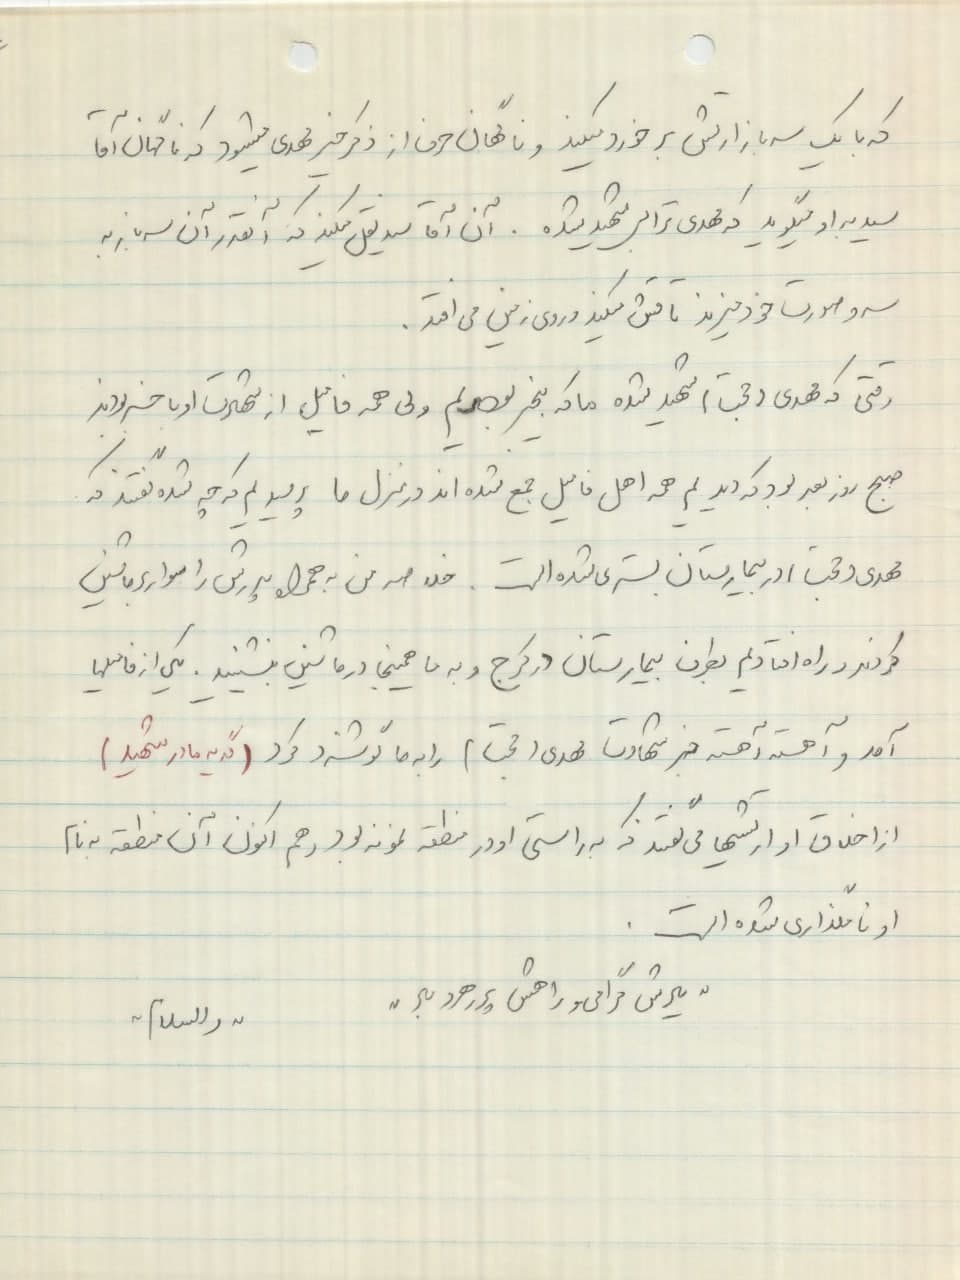 که با یک سرباز ارتشی برخورد میکند و ناگهان حرف از ذکر خیر مهدی میشود که ناگهان آقا
سید به او میگوید که مهدی ترابی شهید شده . آن آقا سید نقل میکند که آنقدر آن سرباز به
سر و صورت خود میزند تا غش میکند و روی زمین می افتد .
وقتی که مهدی (حجت) شهید شده ما که بیخبر بودیم ولی همه فامیل از شهادت او با خبر بودند
صبح روز بعد بود که دیدیم همه اهل فامیل جمع شده اند در منزل ما پرسیدیم که چه شده گفتند که
مهدی (حجت) در بیمارستان بستری شده است . خلاصه من به همراه پدرش را سوار بر ماشین
کردند و راه افتادیم بطرف بیمارستان در کرج و به ما همینجا در ماشین بنشینید . یکی از فامیلها
آمد و آهسته آهسته خبر شهادت مهدی (حجت) را به ما گوشزد کرد (گریه مادر شهید)
از اخلاق او ارتشیها می گفتند که به راستی او در منطقه نمونه بود و هم اکنون آن منطقه به نام
او نامگذاری شده است .
" یادش گرامی و راهش پر رهرو باد "
" والسلام "